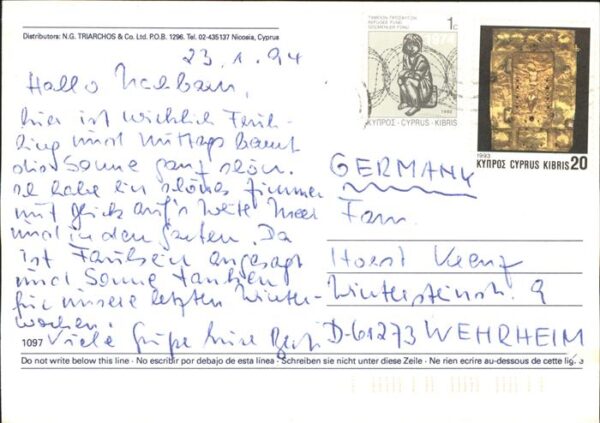 Distributors: N.G. TRIARCHOS & Co. Ltd. P.O.B. 1296. Tel. 02-435137 Nicosia, Cyprus
23.1.94
Hallo Nachbarn,
hier ist wirklich Früh-
ling und mittags brennt
die Sonne ganz schön.
Ich habe ein schönes Zimmer
mit Blick auf's weite Meer
und in den Garten. Da
ist Faulsein angesagt
und Sonne tanken
für unsere letzten Winter-
wochen.
Viele Grüße
1097
1c
1974
ΚΥΠΡΟΣ · CYPRUS · KIBRIS
1993
ΚΥΠΡΟΣ CYPRUS KIBRIS 20
GERMANY
Fam.
Horst
Wintersteinstr. 9
D-61273 WEHRHEIM
Do not write below this line · No escribir por debajo de esta línea · Schreiben sie nicht unter diese Zeile · Ne rien ecrire au-dessous de cette